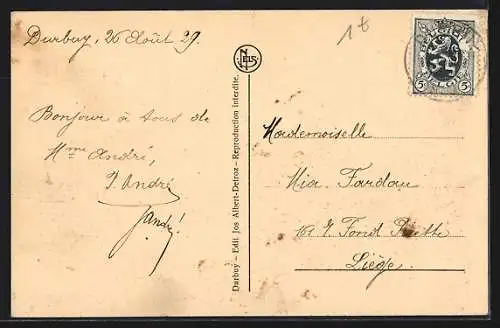 Durbuy, 26 Août 29.
Bonjour à tous de
Mme André,
J. André
Jandré
Durbuy – Edit. Jos Albert-Detroz – Reproduction interdite.
NELS
1 t
BELGIQUE
5 5
BELGIË
Mademoiselle
Mia Fardau
161 Fond
Liége.